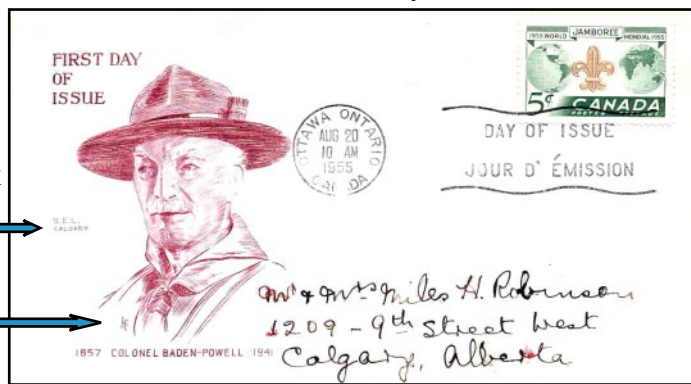 FIRST DAY
OF
ISSUE
O.E.L.
CALGARY
1857 COLONEL BADEN-POWELL 1941
OTTAWA ONTARIO
AUG 20
10 AM
1955
CANADA
1955 WORLD JAMBOREE MONDIAL 1955
5¢ CANADA
POSTES POSTAGE
DAY OF ISSUE
JOUR D' ÉMISSION
Mr & Mrs Miles H. Robinson
1209 - 9th Street West
Calgary, Alberta